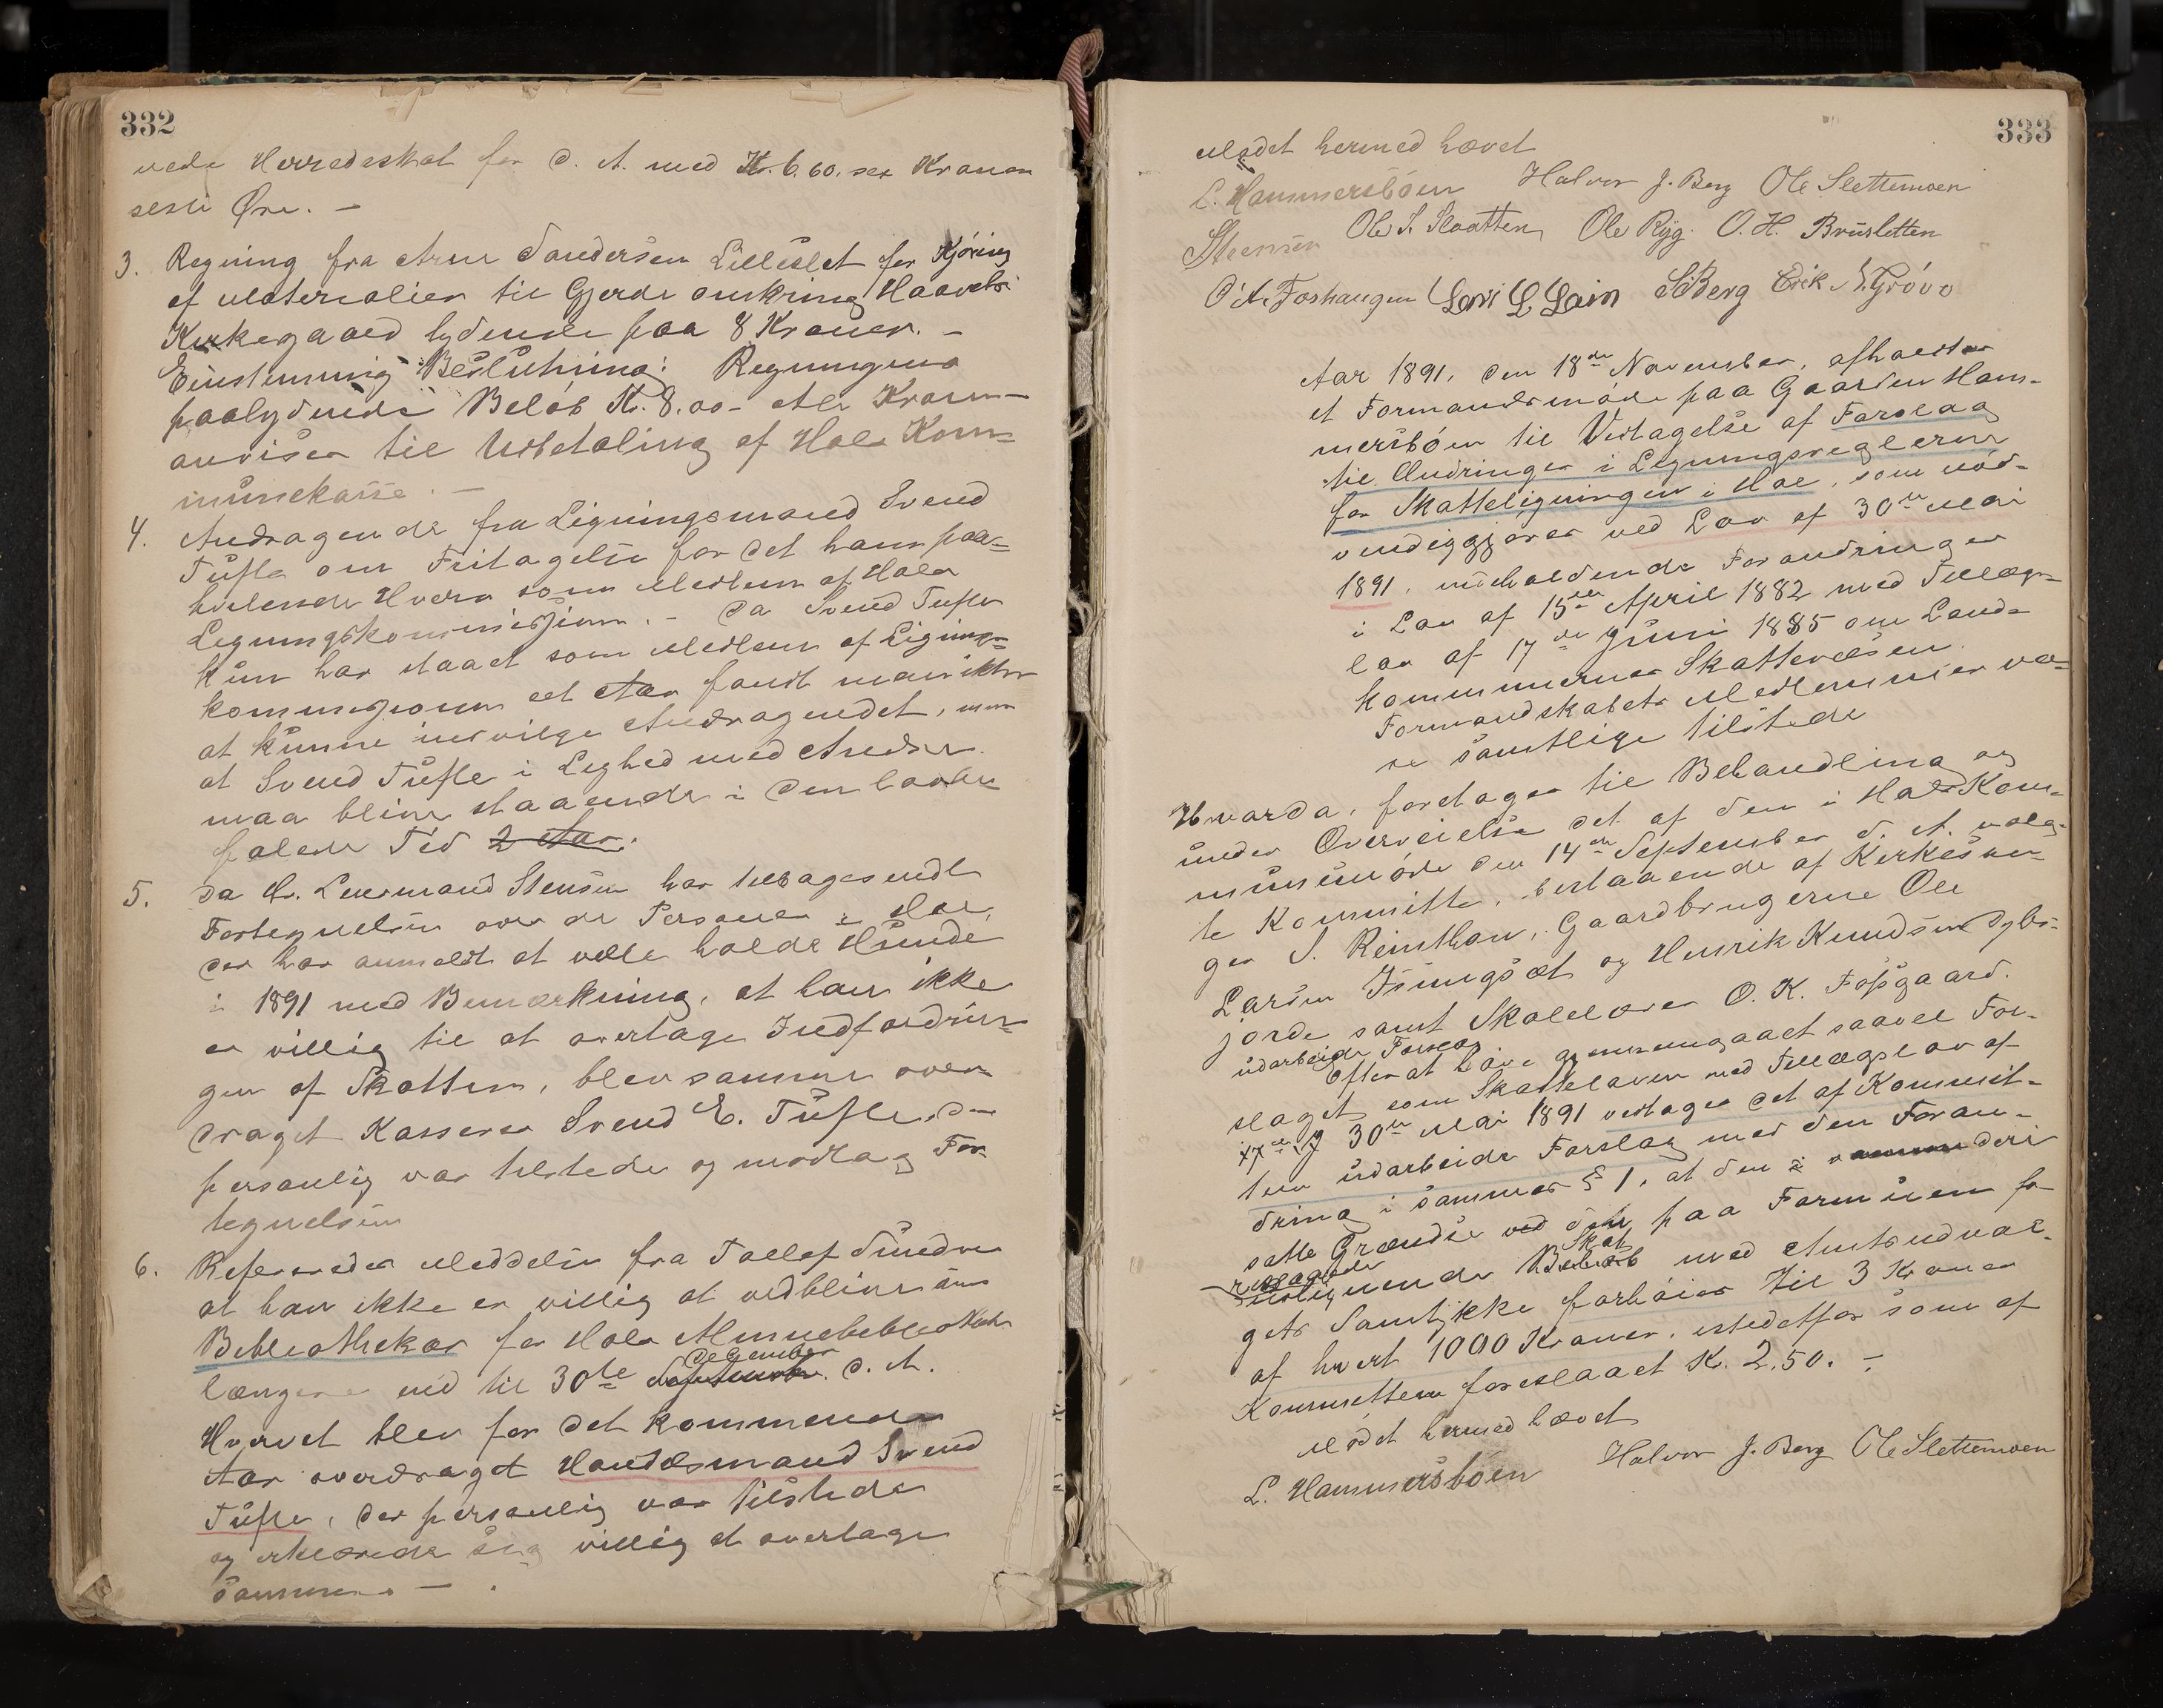 332
vede Herredsskat for d. A. med Kr. 6.60. sex Kroner
sexti Øre. —
3. Regning fra Arne Sandersen Lilleslet for Kjøring
af Materialier til Gjerde omkring Haavels
Kirkegaard lydende paa 8 Kroner. —
Einstemmig Beslutning: Regningens
paalydende Beløb Kr. 8.00 - Kroner —
anvises til Udbetaling af Hols Kom=
munekasse. —
4. Andragende fra Ligningsmand Svend
Tufte om Fritagelse for det ham paa=
hvilende Hverv som Medlem af Hols
Ligningskommission. — Da Svend Tufte
kun har staaet som Medlem af Lignings=
kommissionen et Aar fandt man ikke
at kunne indvilge Andragendet, men
at Svend Tufte i Lighed med Andre
maa blive staaende i den lovbe
falede Tid 2 Aar.
5. Da Hr. Lensmand Stensen har tilbagesendt
Fortegnelsen over de Personer i Hol,
der har anmeldt at ville holde Hunde
i 1891 med Bemærkning, at han ikke
er villig til at overtage Indfordrin=
gen af Skatten, blev samme over=
draget Kasserer Svend E. Tufte, der
personlig var tilstede og modtog For=
tegnelsen
6. Refereredes Meddelse fra Tollef Sundre
at han ikke er villig at vedblive som
Bibliothekar for Hols Almuebibliothek
længere end til 30te September December d. A.
Hvervet blev for det kommende
Aar overdraget Handelsmand Svend
Tufte, der personlig var tilstede
og erklærede sig villig at overtage
samme. — .
333
Mødet hermed hævet
L. Hammersbøen Halvor J. Berg Ole Slettemoen
Stensen Ole S. Slaatten Ole Ryg. O. H. Brusletten
O. A. Foshaugen Levi L. Lein S Berg Erik N. Grøvo
Aar 1891, den 18de November, afholdtes
et Formandsmøde paa Gaarden Ham=
mersbøen til Vedtagelse af Forslag
til Ændringer i Ligningsreglerne
for Skatteligningen i Hol, som nød=
vendiggjøres ved Lov af 30te Mai
1891, indeholdende Forandringer
i Lov af 15de April 1882 med Tillægs=
lov af 17de Juni 1885 om Land=
kommunernes Skattevæsen.
Formandskabets Medlemmer va=
re samtlige tilstede
Hvorda, foretages til Behandling og
under Overveielse det af den i Hols Kom=
munemøde den 14de September d. A. valg=
te Kommitte, bestaaende af Kirkesan=
ger S. Reinthon, Gaardbrugerne Ole
Larsen Isungset og Henrik Knudsen Sybe=
jorde samt Skolelærer O. K. Fosgaard.
udarbeide Forslag
Efter at have gjennemgaaet saavel For=
slaget som Skatteloven med Tillægslov af
17de og 30te Mai 1891 vedtages det af Kommit=
teen udarbeide Forslag med den Foran=
dring i sammes § 1, at den i samme deri
satte Grændse ved det paa Formuen fo=
resagede
udlignende Beløb Skat med Amtsudval=
gets Samtykke forhøies til 3 Kroner
af hvert 1000 Kroner, istedetfor som af
Kommitteen foreslaaet Kr. 2.50. —
Mødet hermed hævet
L. Hammersbøen Halvor J. Berg Ole Slettemoen